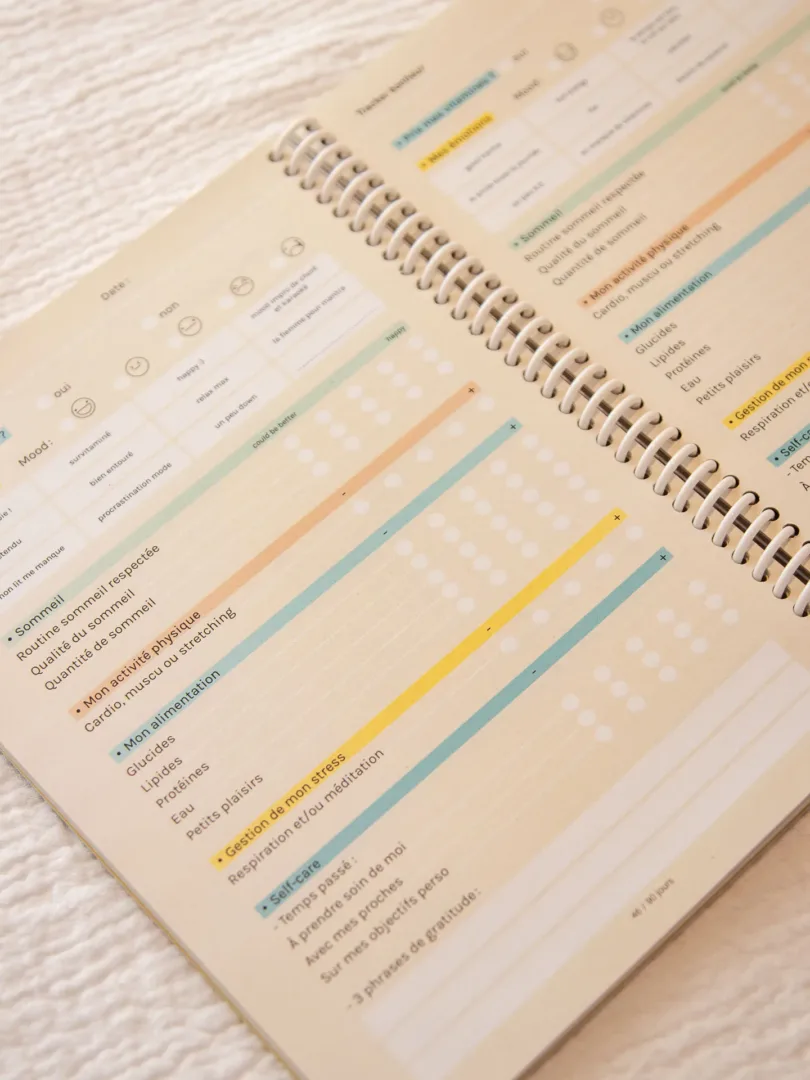 Date :
?
oui
non
Mood :
survitaminé
happy :)
mood impro de chant
et karaoké
bien entouré
relax max
la flemme pour mantra
mon lit me manque
procrastination mode
un peu down
• Sommeil
could be better
happy
Routine sommeil respectée
Qualité du sommeil
Quantité de sommeil
• Mon activité physique
-
+
Cardio, muscu ou stretching
• Mon alimentation
-
+
Glucides
Lipides
Protéines
Eau
Petits plaisirs
• Gestion de mon stress
-
+
Respiration et/ou méditation
• Self-care
-
+
- Temps passé :
À prendre soin de moi
Avec mes proches
Sur mes objectifs perso
- 3 phrases de gratitude:
46 / 90 jours
Tracker bonheur
• Pris mes vitamines ?
Mood :
• Mes émotions
• Sommeil
Routine sommeil respectée
Qualité du sommeil
Quantité de sommeil
• Mon activité physique
Cardio, muscu ou stretching
• Mon alimentation
Glucides
Lipides
Protéines
Eau
Petits plaisirs
• Gestion de mon
Respiration et/
• Self-ca
- Temp
À